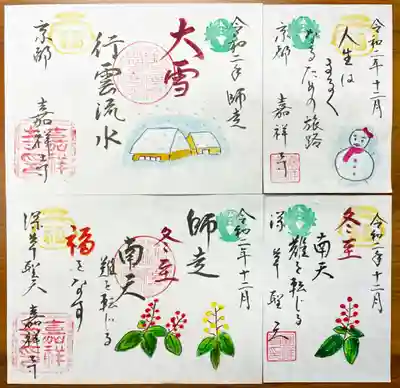 令和二年 師走
大雪
行雲流水
京都 嘉祥寺
嘉祥寺
令和二年十二月
人生は
まるく
なるための旅路
京都 嘉祥寺
令和二年十二月
師走
冬至
南天
難を転じる
福となす
深草聖天 嘉祥寺
嘉祥寺
令和二年十二月
冬至
南天
難を転じる
深草聖天